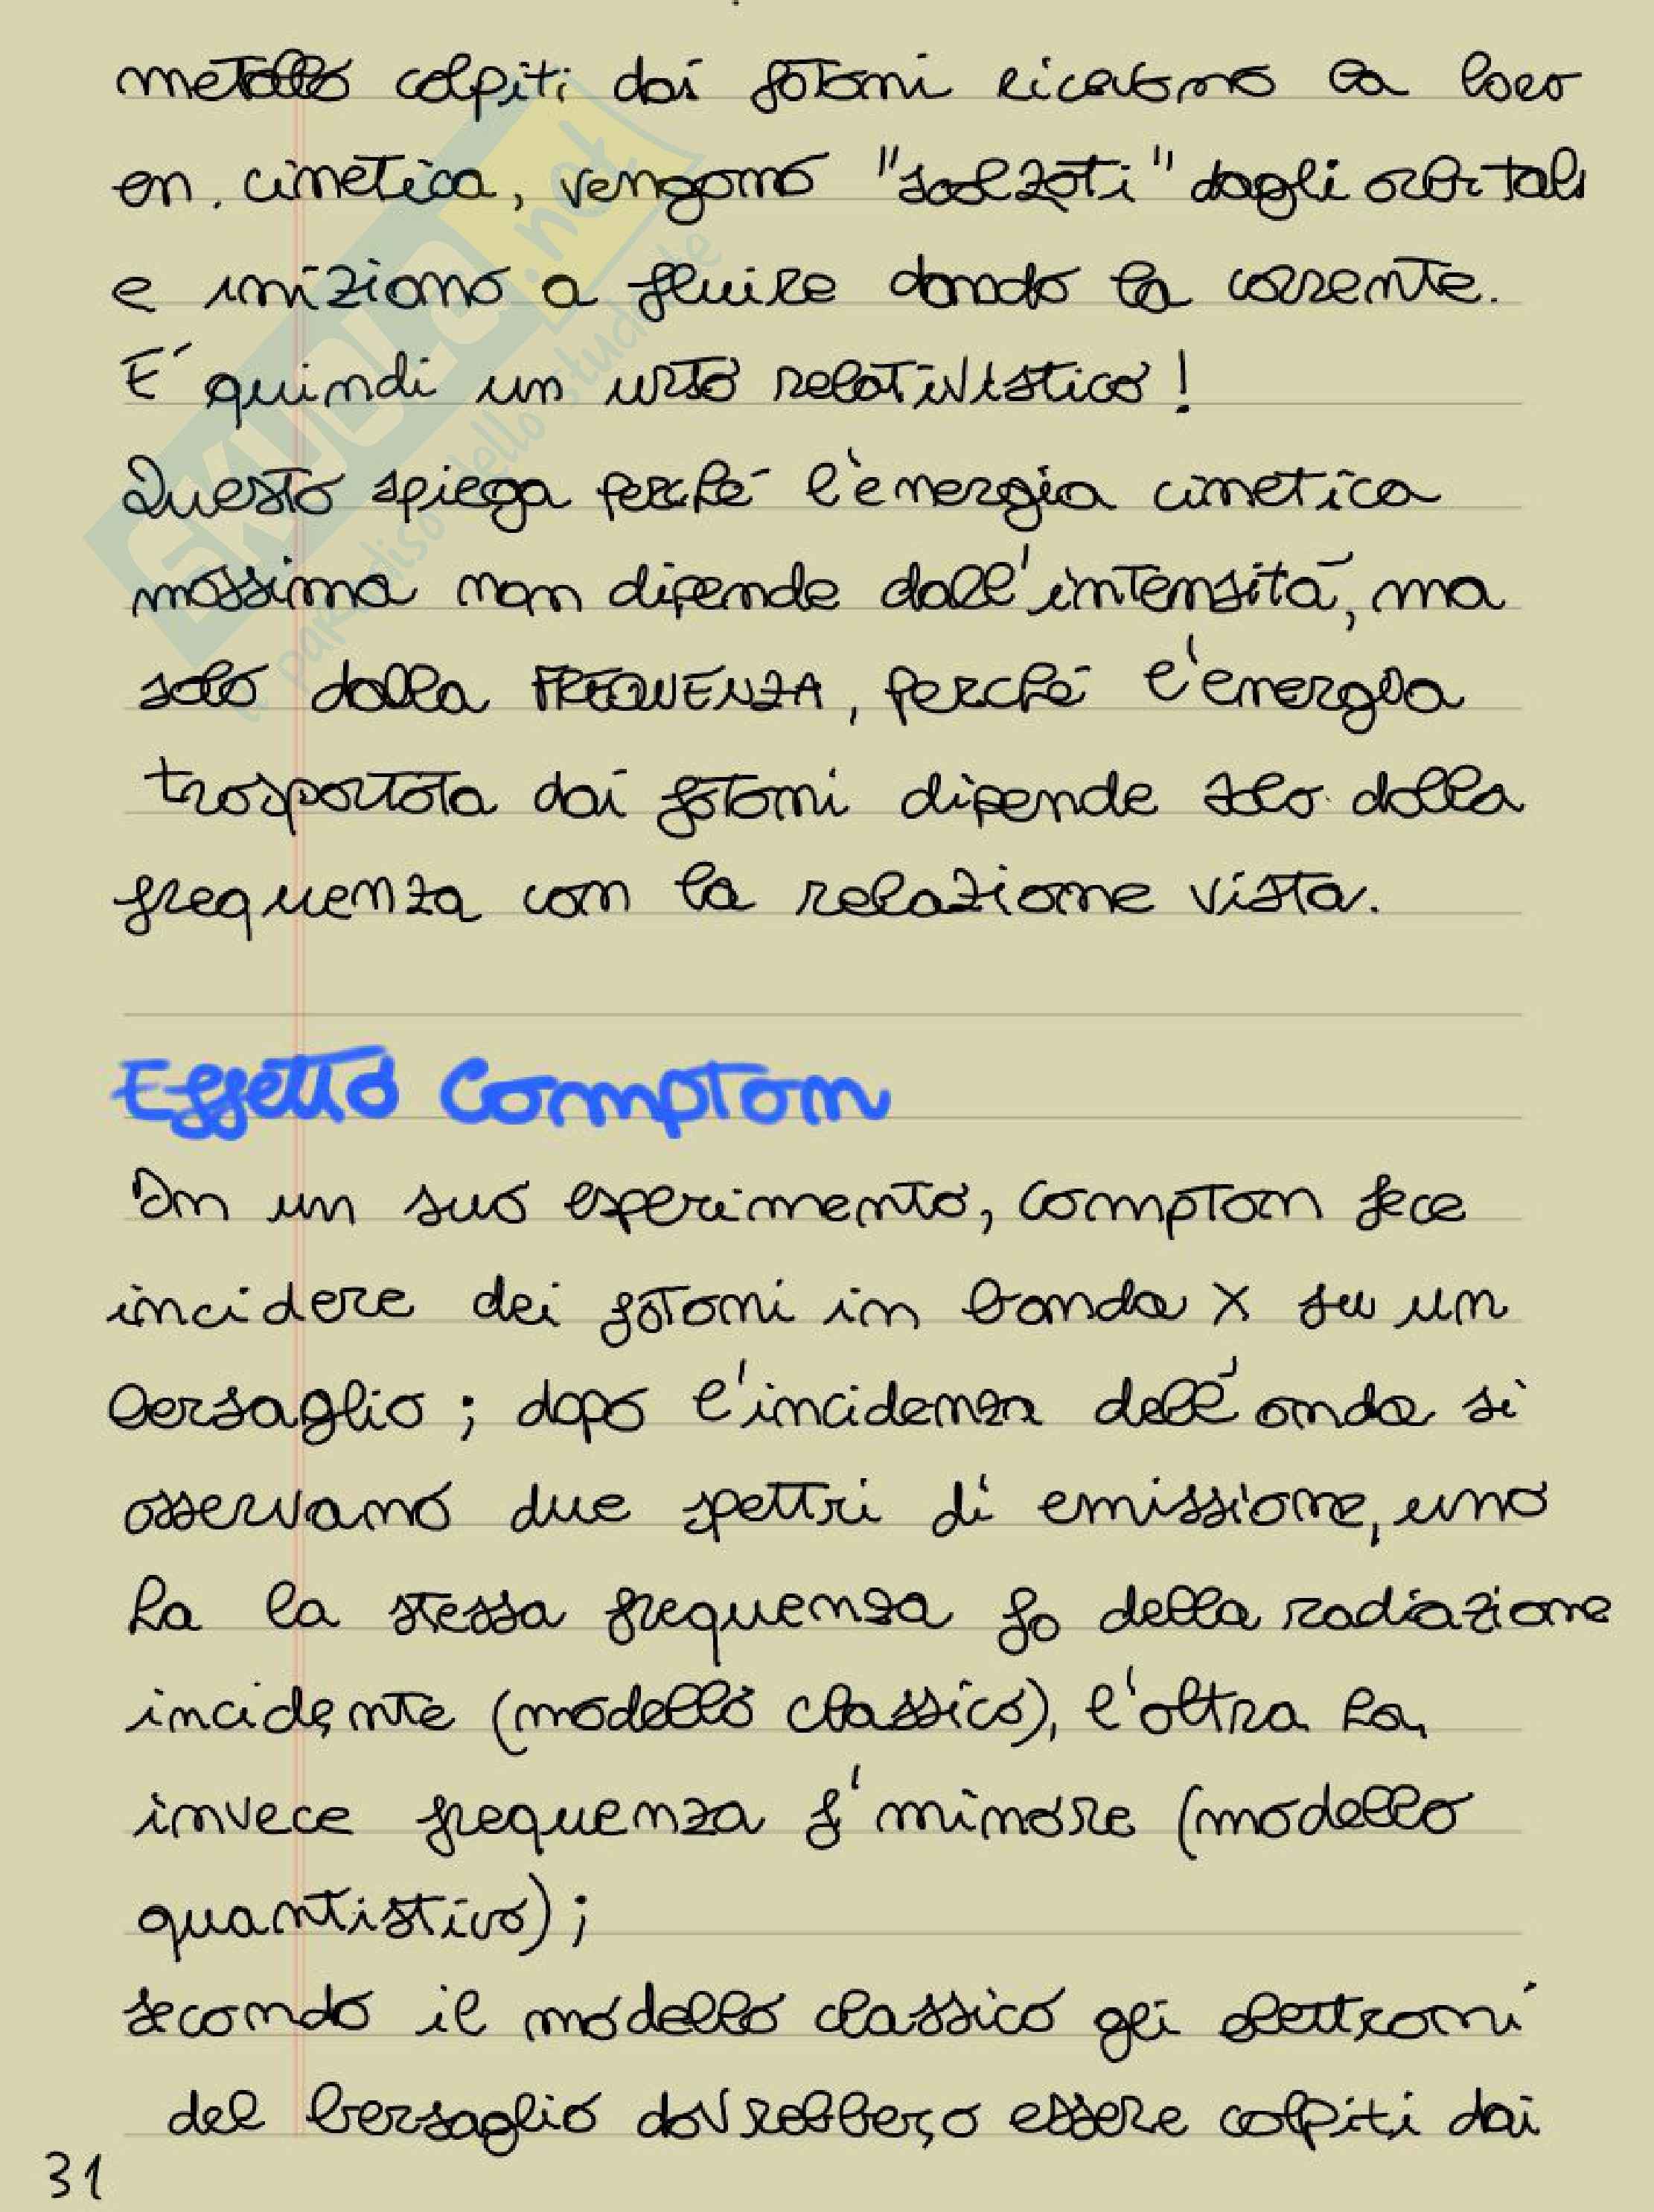 metallo colpiti dai fotoni ricevono la loro
en. cinetica, vengono "sbalzati" dagli orbitali
e iniziano a fluire dando la corrente.
E' quindi un urto relativistico!
Questo spiega perché l'energia cinetica
massima non dipende dall'intensità, ma
solo dalla FREQUENZA, perché l'energia
trasportata dai fotoni dipende solo dalla
frequenza con la relazione vista.
Effetto Compton
In un suo esperimento, Compton fece
incidere dei fotoni in banda X su un
bersaglio; dopo l'incidenza dell'onda si
osservano due spettri di emissione, uno
ha la stessa frequenza f0 della radiazione
incidente (modello classico), l'altra ha,
invece frequenza f' minore (modello
quantistivo);
secondo il modello classico gli elettroni
del bersaglio dovrebbero essere colpiti dai
31
SKUOLA.net
"paradiso dello studente